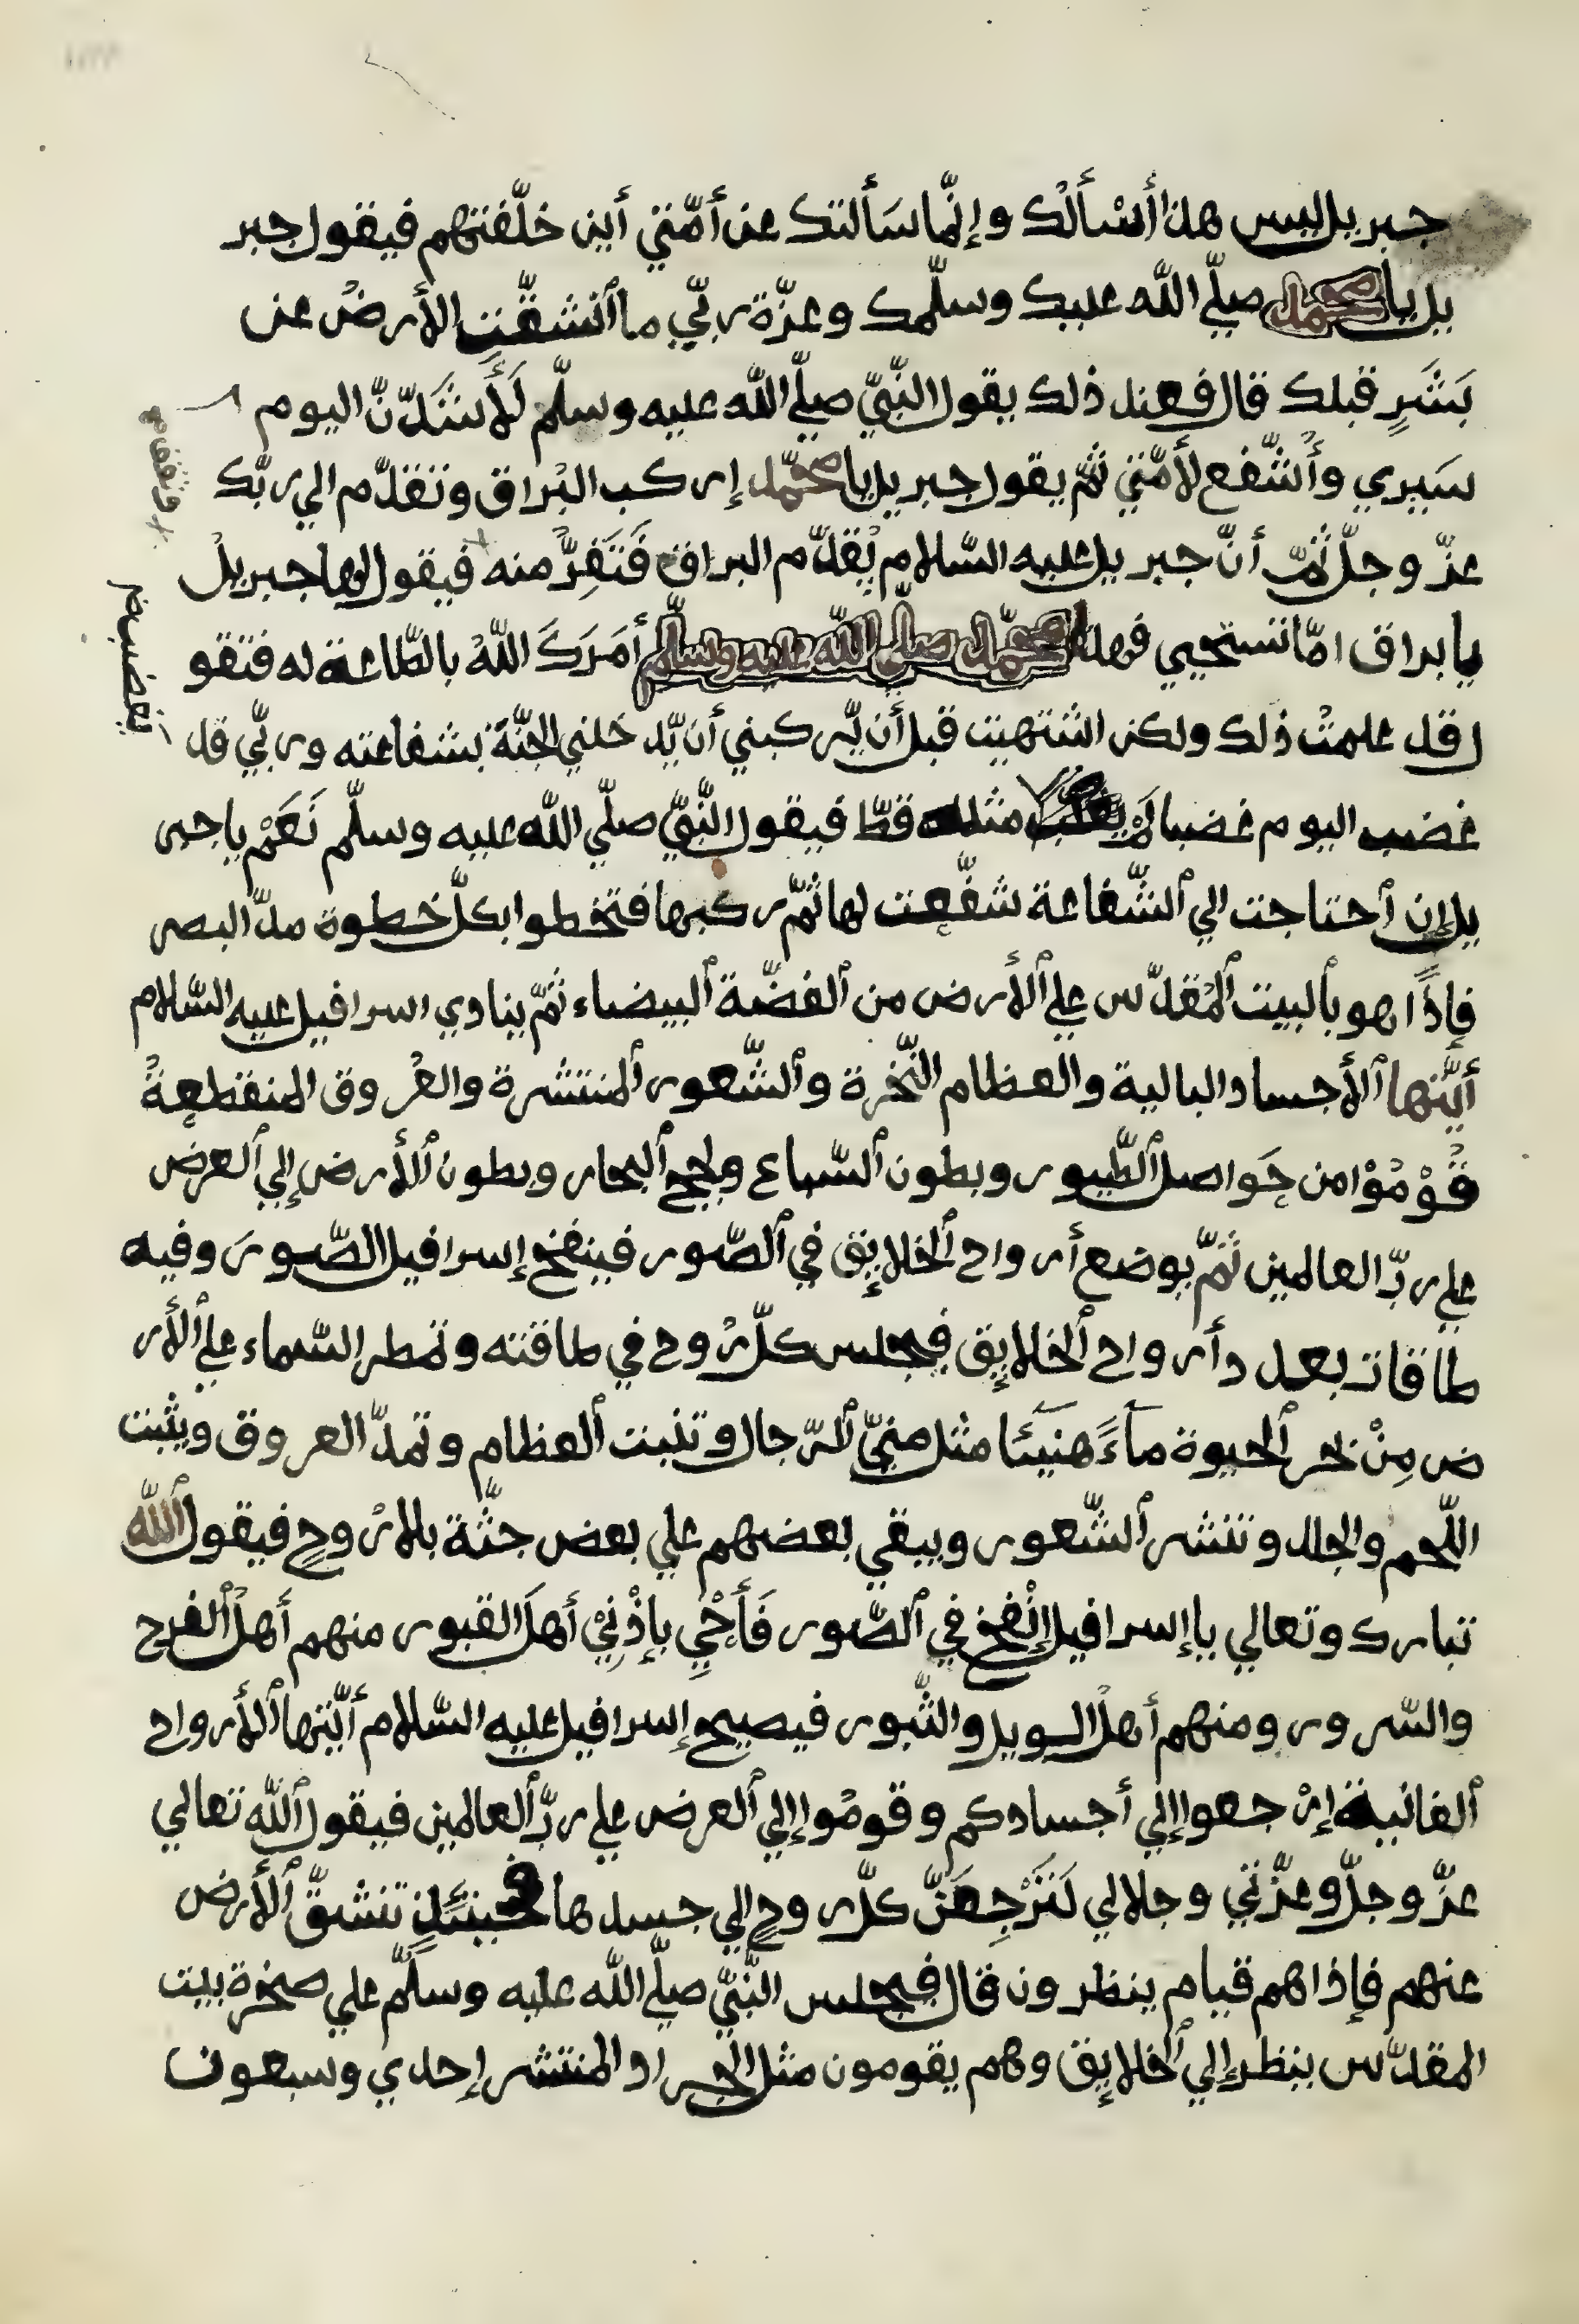 جبريل ليس هذا أسْألُك وإنّما سَألتك عن أمّتي أين خلّفتهم فيقول جبر
يل يا محمد صلّي اللّه عليك وسلّمك وعزّة ربّي ما ٱنشقّتِ الأرضُ عن
بَشَرٍ قبلك قال فعند ذلك يقول النّبيّ صلّي اللّه عليه وسلّم لَأشَدّنّ اليوم
سَيري وأشفع لأمّتي ثمّ يقول جبريل يا محمّد إركب البُراق وتقدّم الي ربّك
عزّ وجلّ ثمّ أنّ جبريل عليه السّلام يُقدّم البراق فَتَفِرُّ منه فيقول لها جبريلُ
يا براق امّا تستحيي فهذا محمّد صلّي اللّه عليه وسلّم أمَرَكَ اللّهُ بالطّاعة له فتقو
ل قد علمتُ ذلك ولكن اشتهيت قبل أن يّركبني أن يّدخلني الجنّة بشفاعته وربّي قد
غضب اليوم غضبا لَمْ مثله قطّ فيقول النّبيّ صلّي اللّه عليه وسلّم نَعَمْ يا جبر
يل إن ٱحتاجت الي ٱلشّفاعة شفّعت لها ثمّ ركبها فتخطوا بكلّ خطوة مدّ البصر
فإذًا هو بٱلبيت ٱلمُقدّس علي ٱلأرض من ٱلفضّة ٱلبيضاء ثمّ ينادي اسرافيل عليه السّلام
أيّتها ٱلأجساد البالية والعظام النّخرة وٱلشّعور ٱلمنتشرة والعُروق المنقطعةُ
قُوْمُوْا من حَواصل ٱلطّيور وبطون ٱلسّباع ولجج ٱلبحار وبطون ٱلأرض إلي ٱلعرض
علي ربّ العالمين ثمّ يوضع أرواح ٱلخلايِق في ٱلصّور فينفخ إسرافيل الصّورَ وفيه
طاقات بعدد أرواح ٱلخلايِق فيجلس كلّ رُوح في طاقته وتمطر السّماء علي ٱلأر
ض مِنْ بحر ٱلحيوة مآءً هنيئا مثل منيّ ٱلرّجال وتنبت ٱلعظام وتمدّ العروق ويثبت
اللّحم والجلد وتنشر ٱلشّعور ويبقي بعضهم علي بعض جثّة بلا رُوحٍ فيقول ٱللّه
تبارك وتعالي يا إسرافيل إنْفخ في ٱلصّور فَأَحْيِ بإذْنِيْ أهلَ القبور منهم أهل ٱلفرح
والسّرور ومنهم أهل الويل والثّبور فيصيح إسرافيل عليه السّلام أيّتها ٱلأرواح
ٱلفانية إرْجعوا إلي أجسادكم وقومُوا إلي ٱلعرض علي ربّ ٱلعالمين فيقول ٱللّه تعالي
عزّ وجلّ وعزّتي وجلالي لَتَرْجِعَنّ كلّ روحٍ إلي جسدها فحينئذٍ تنشقّ ٱلأرض
عنهم فإذا هم قيام ينظرون قال فيجلس النّبيّ صلّي اللّه عليه وسلّم علي صخرة بيت
المقدّس ينظر إلي ٱلخلايِق وهم يقومون مثل الجراد المنتشر إحدي وسبعون
يغضب